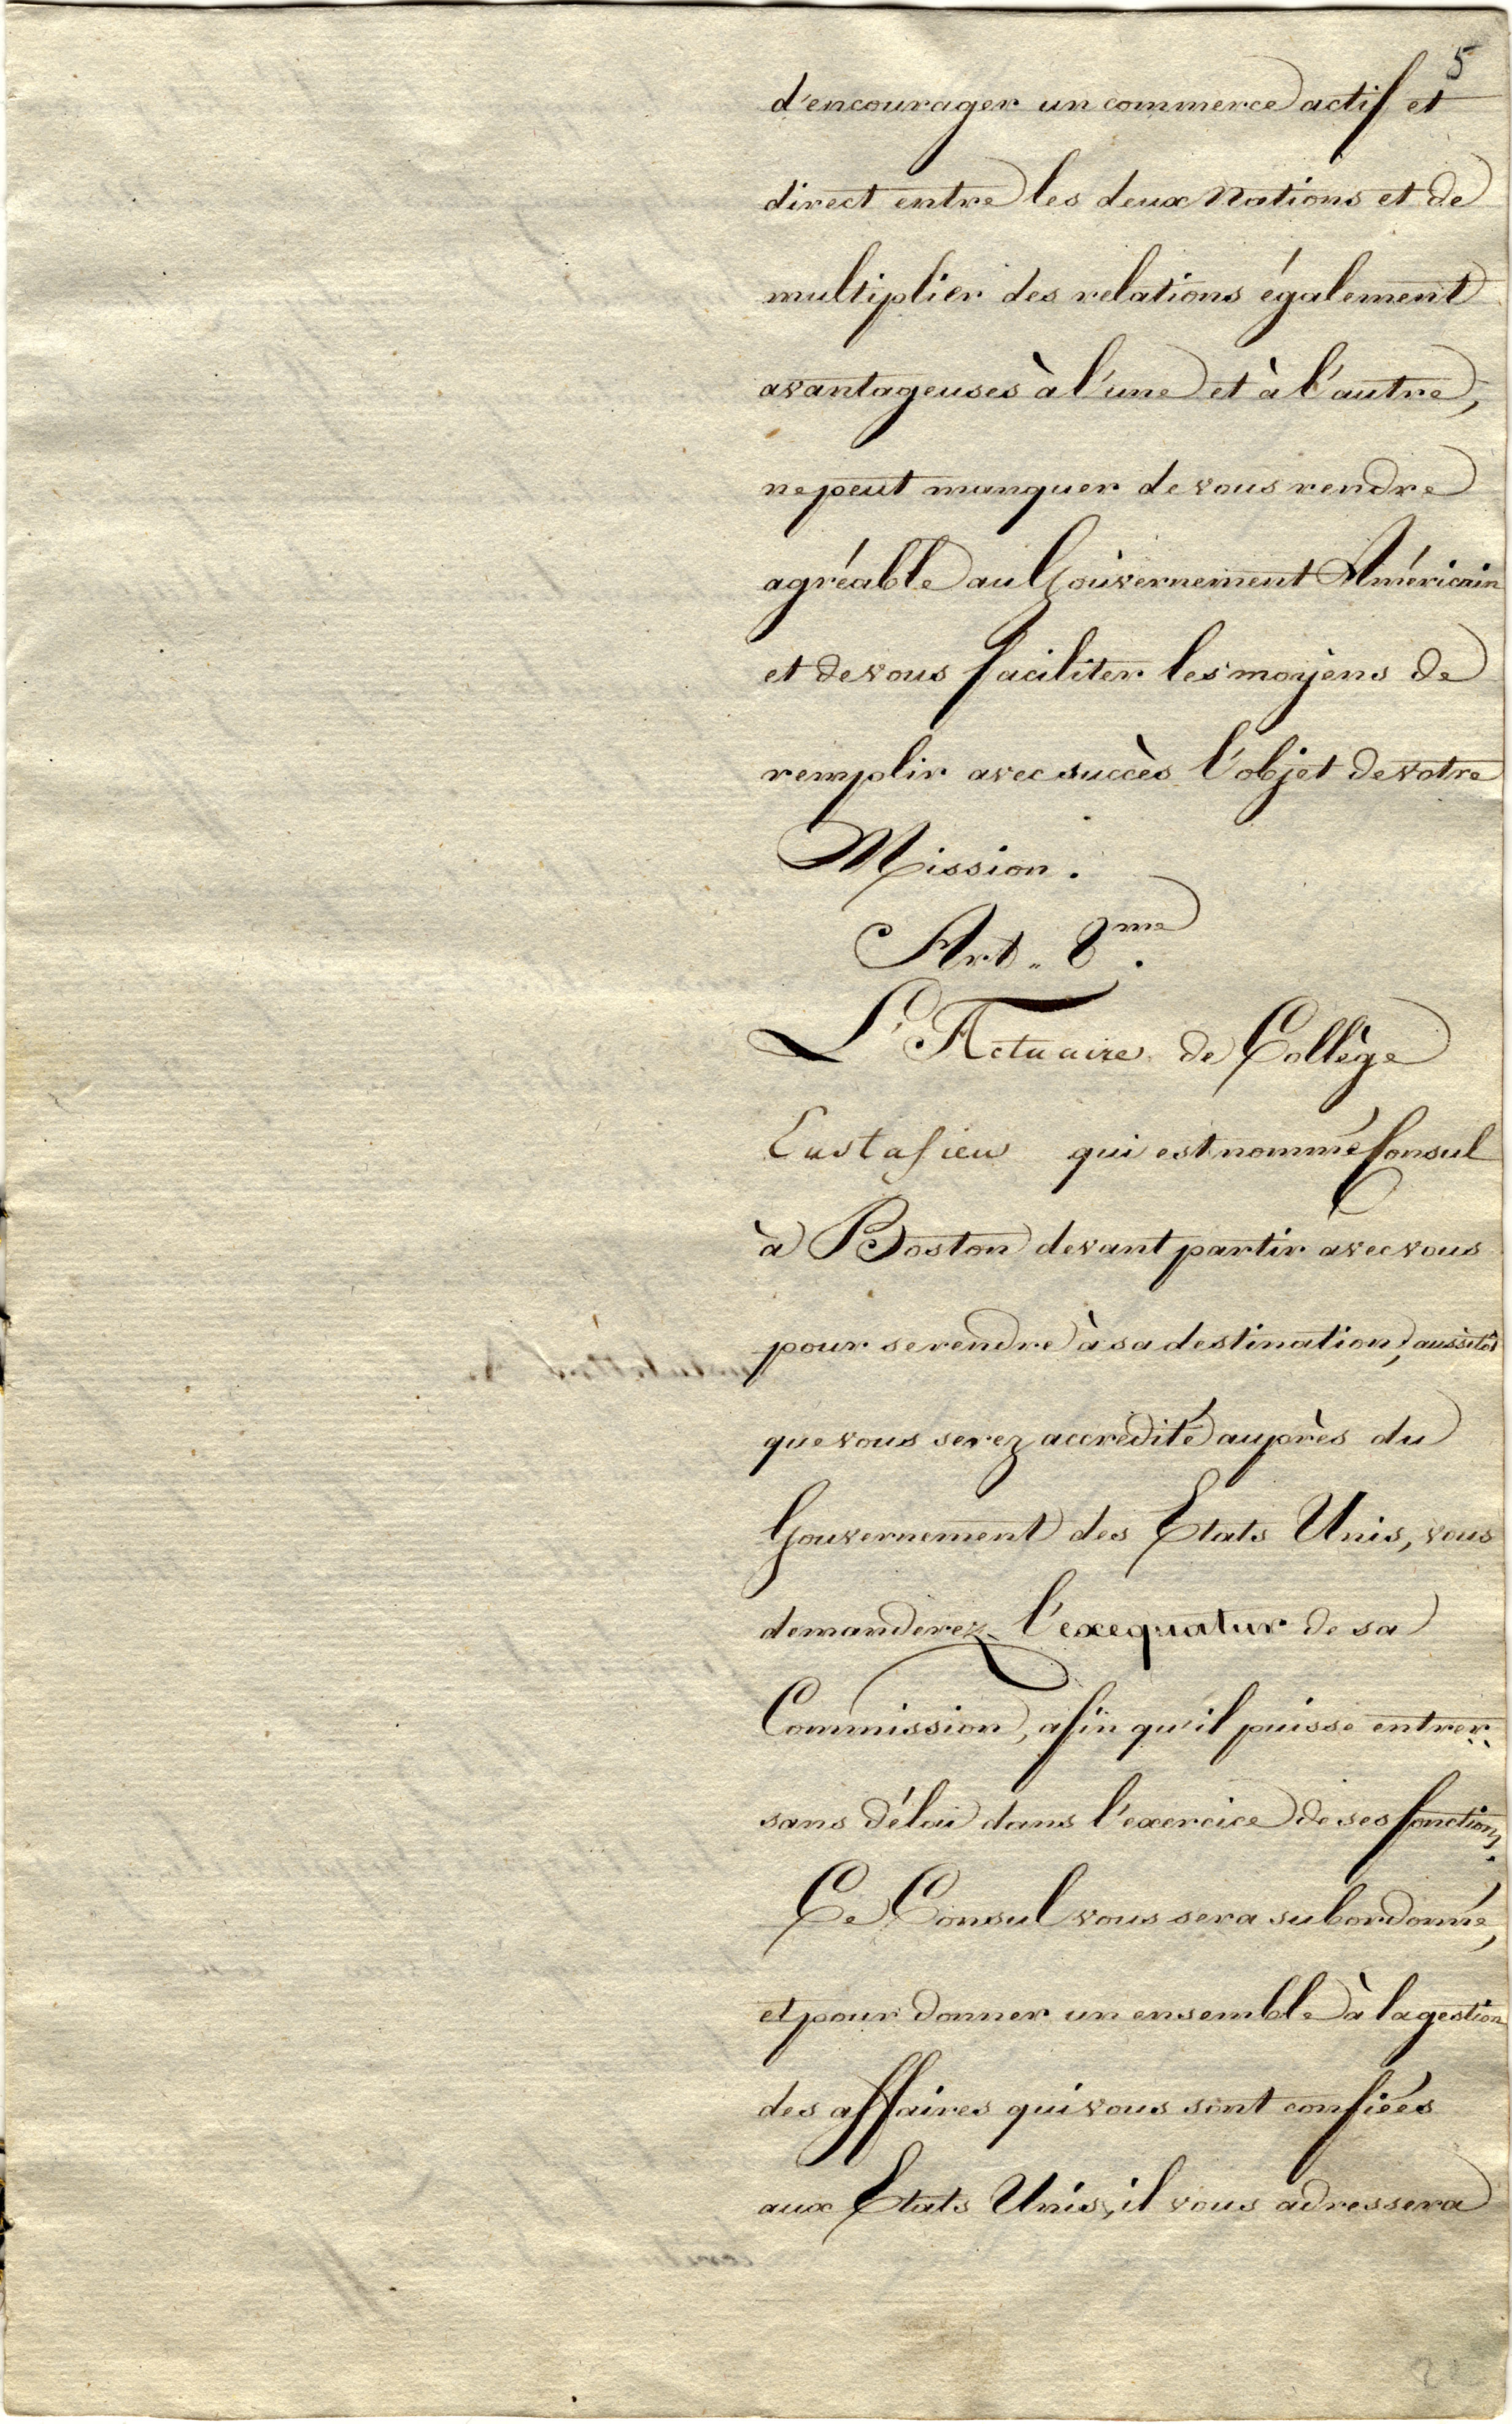 5
d'encourager un commerce actif et
direct entre les deux Nations et de
multiplier des relations également
avantageuses à l'une et à l'autre,
ne peut manquer de vous rendre
agréable au Gouvernement Américain
et de vous faciliter les moyens de
remplir avec succès l'objet de votre
Mission.
Art. 8me.
L'Actuaire de Collège
Eustafieu qui est nommé Consul
à Boston devant partir avec vous
pour se rendre à sa destination, aussitôt
que vous serez accrédité auprès du
Gouvernement des Etats Unis, vous
demanderez l'exequatur de sa
Commission, afin qu'il puisse entrer
sans délai dans l'exercice de ses fonctions.
Ce Consul vous sera subordonné,
et pour donner un ensemble à la gestion
des affaires qui vous sont confiées
aux Etats Unis, il vous adressera